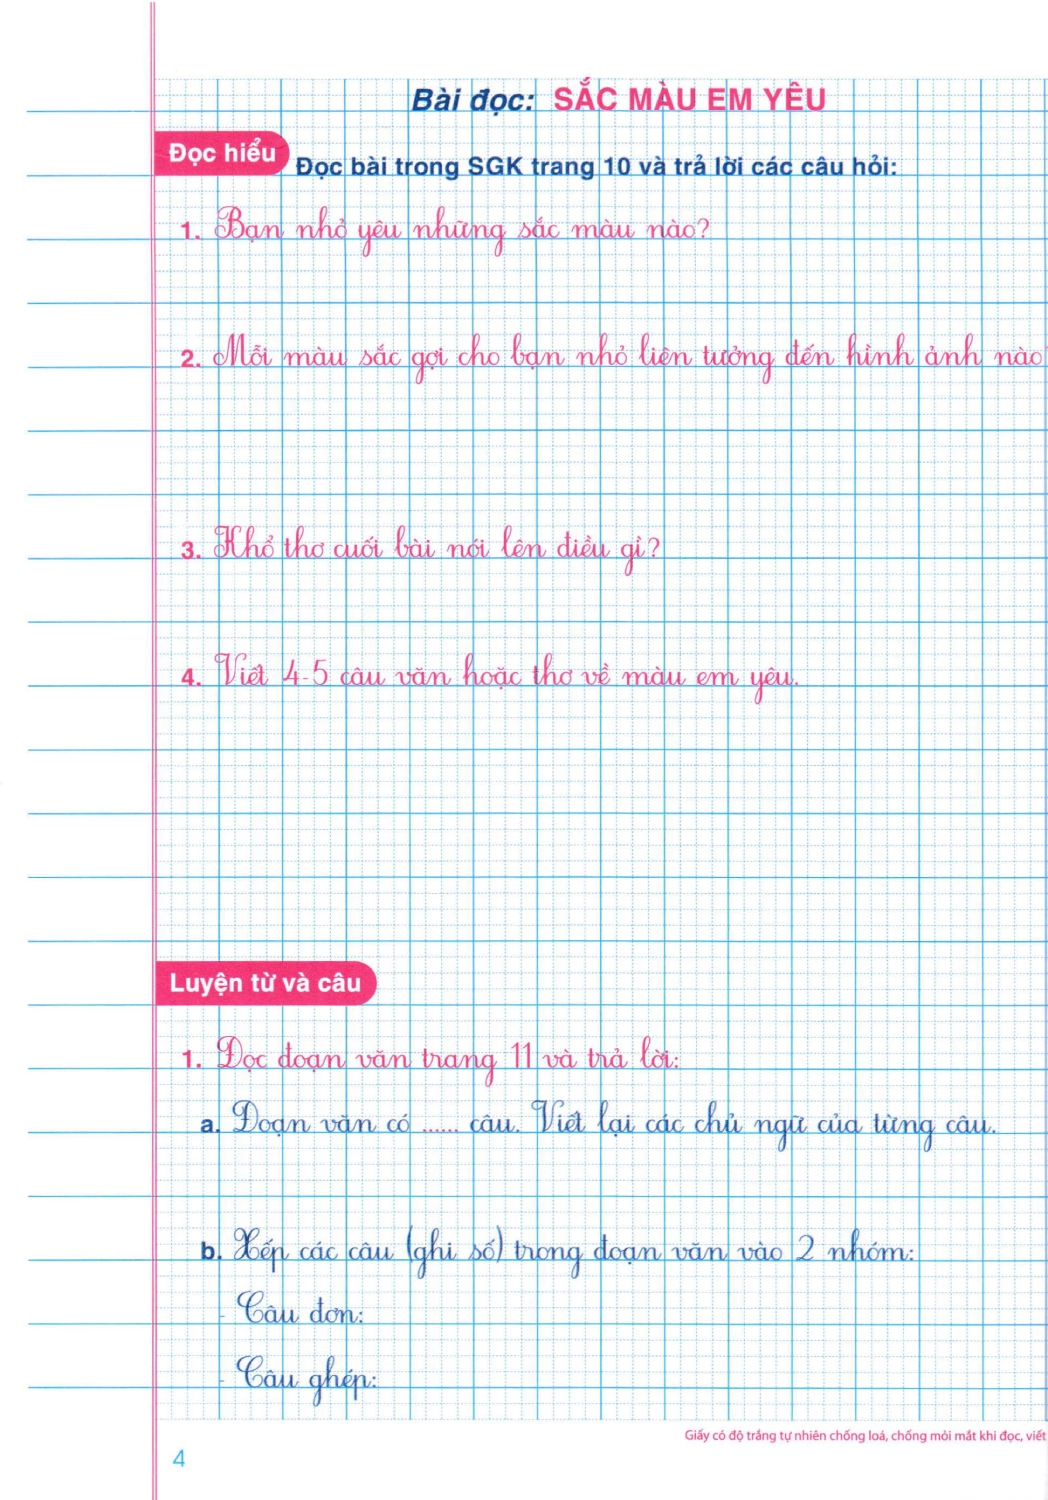 Bài đọc: SẮC MÀU EM YÊU
Đọc hiểu Đọc bài trong SGK trang 10 và trả lời các câu hỏi:
1. Bạn nhỏ yêu những sắc màu nào?
2. Mỗi màu sắc gợi cho bạn nhỏ liên tưởng đến hình ảnh nào
3. Khổ thơ cuối bài nói lên điều gì?
4. Viết 4-5 câu văn hoặc thơ về màu em yêu.
Luyện từ và câu
1. Đọc đoạn văn trang 11 và trả lời:
a. Đoạn văn có ...... câu. Viết lại các chủ ngữ của từng câu.
b. Xếp các câu (ghi số) trong đoạn văn vào 2 nhóm:
- Câu đơn:
- Câu ghép:
Giấy có độ trắng tự nhiên chống loá, chống mỏi mắt khi đọc, viết
4